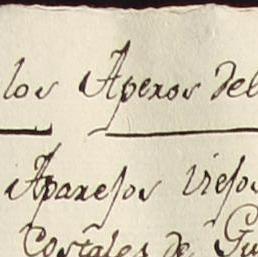 los Aperos del
Aparejos viejos
Costales de Gu